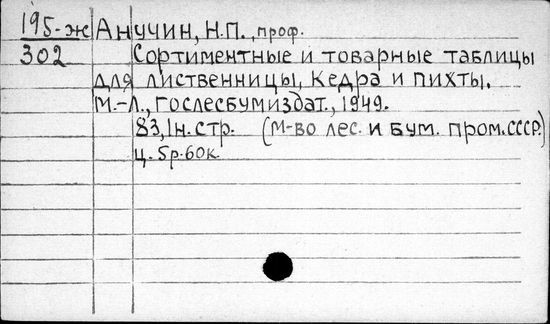 195-ж Анучин, Н.П., проф.
302 Сортиментные и товарные таблицы
для лиственницы, кедра и пихты.
М.-Л., Гослесбумиздат., 1949.
83, 1н. стр. (М-во лес. и бум. пром. СССР.)
ц. 5р. 60к.